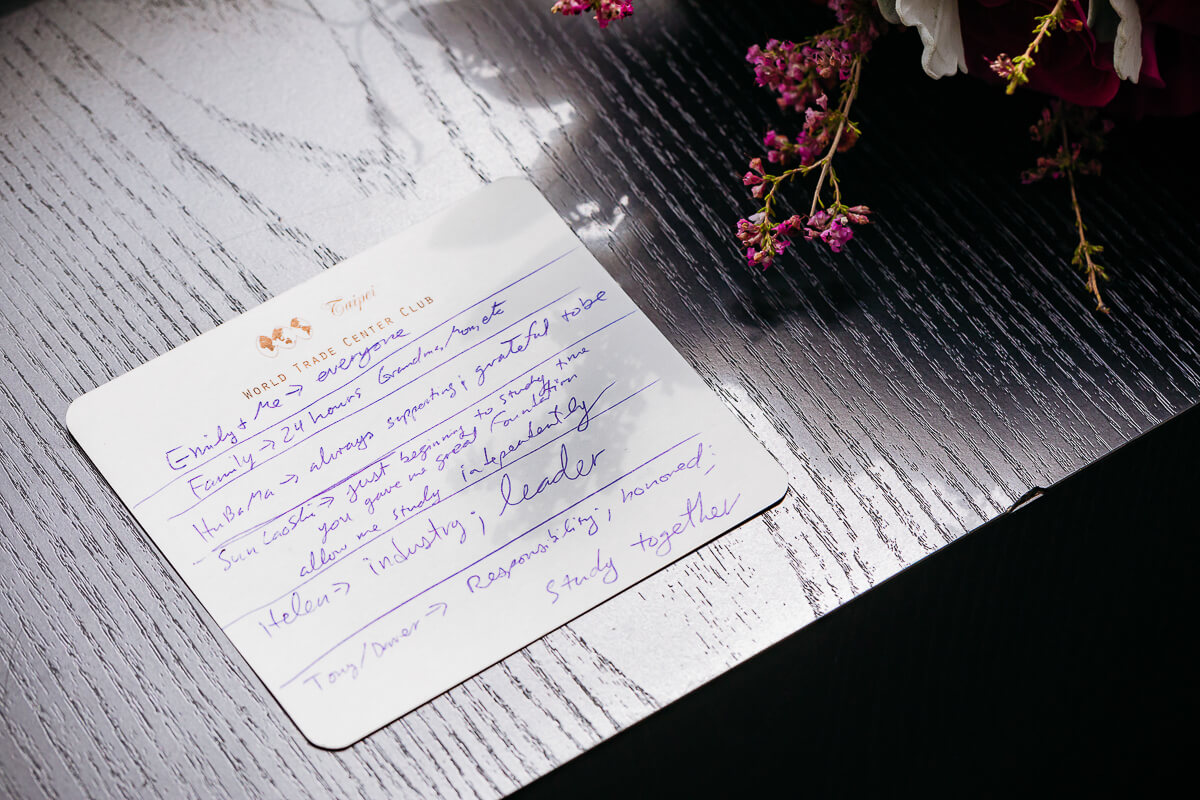 Taipei
WORLD TRADE CENTER CLUB
Emily + Me → everyone
Family → 24 hours Grandma, Mom, etc
HuBaMa → always supporting; grateful to be
Sun Laoshi → just beginning to study time
you gave me great foundation
allow me study independently
Helen → industry; leader
Tony/ → Responsibility; honored;
Study together